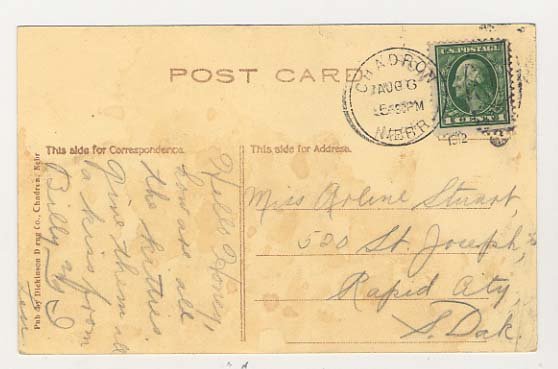 POST CARD
CHADRON
AUG 6
PM
NEBR.
1912
U.S. POSTAGE
1 CENT 1
This side for Correspondence.
This side for Address.
Hello Honey,
How are all
the kitties
Give them all
a kiss from
Billy and I
Miss Arline Stuart,
520 St. Joseph,
Rapid City,
S. Dak.
Pub by Dickinson Drug Co., Chadron, Nebr